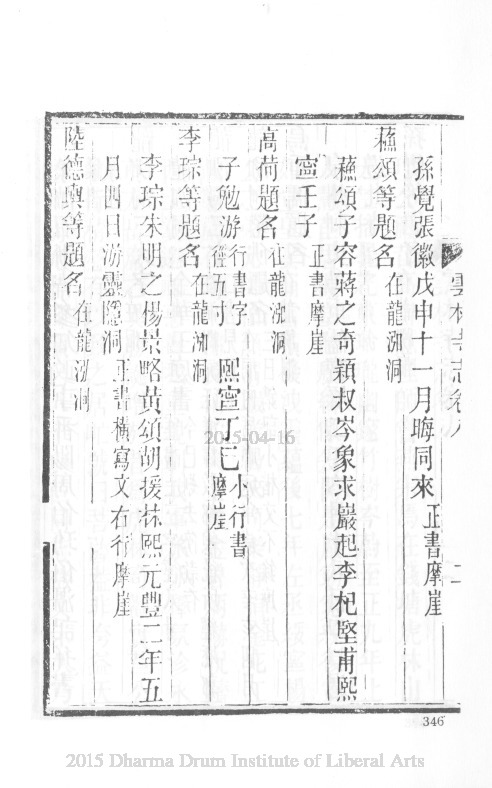 孫覺張徽戊申十一月晦同來 正書摩崖
蘇頌等題名 在龍泓洞
蘇頌子容蔣之奇穎叔岑象求巖起李杞堅甫熙
寧壬子 正書摩崖
高荷題名 在龍泓洞
子勉游 行書字徑五寸 熙寧丁巳 小行書摩崖
李琮等題名 在龍泓洞
李琮朱明之楊景略黃頌胡援林熙元豐二年五
月四日游靈隱洞 正書橫寫文右行摩崖
陸德輿等題名 在龍泓洞
雲林寺志卷八
二
346
2015-04-16
2015 Dharma Drum Institute of Liberal Arts